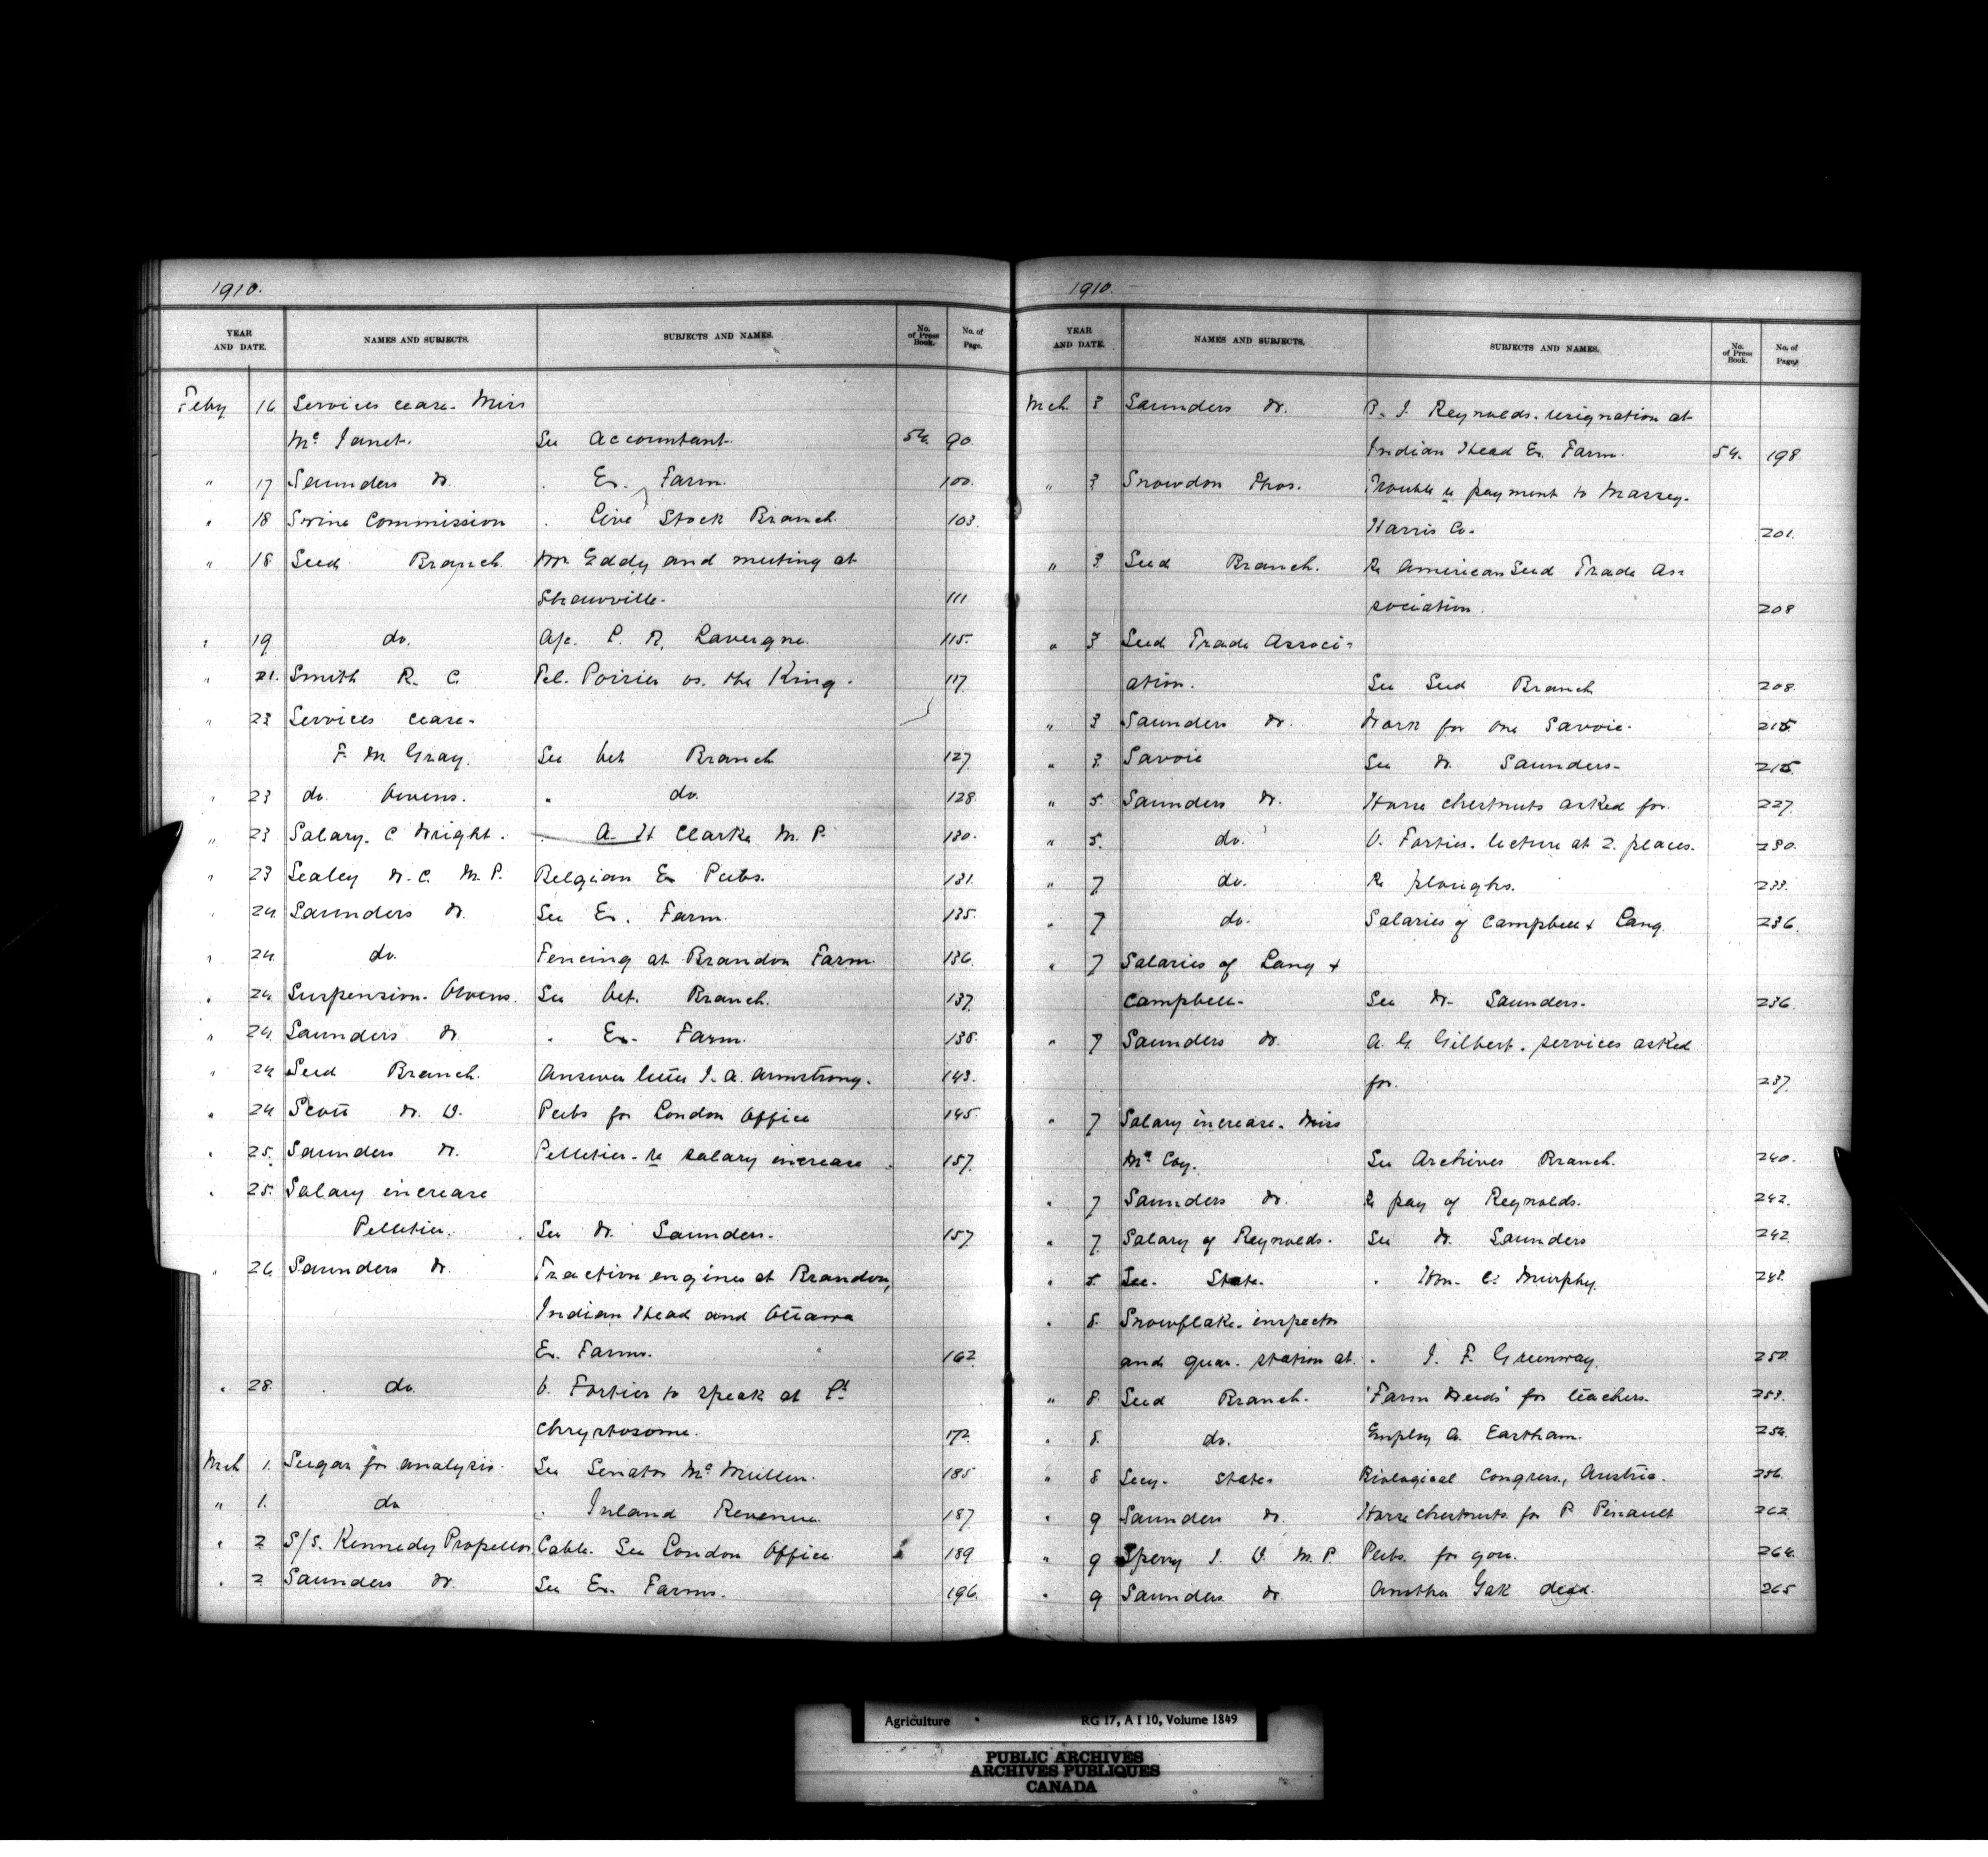 1910.
YEAR AND DATE. NAMES AND SUBJECTS. SUBJECTS AND NAMES. No. of Press Book. No. of Page.
Feby 16 Services cease. Miss
Mc Janet. See Accountant. 54. 90.
" 17 Saunders Dr. . Ex. Farm. 100.
" 18 Swine Commission . Live Stock Branch. 103.
" 18 Seed Branch. Mr Eddy and meeting at
Shawville. 111
" 19 do. A/c. P. R. Lavergne. 115.
" 21. Smith R. C. Pel. Poirier vs. the King. 117
" 23 Services cease.
F. M. Gray. See Vet Branch 127
" 23 do. Owens. " do. 128.
" 23 Salary. C. Wright. . A. H Clarke M. P. 130.
" 23 Sealey W. C. M. P. Belgian Ex Pubs. 131.
" 24 Saunders Dr. See Ex. Farm. 135.
" 24 do. Fencing at Brandon Farm. 136.
" 24 Suspension. Owens. See Vet. Branch. 137.
" 24. Saunders Dr . Ex. Farm. 138.
" 24 Seed Branch. Answer letter J. A. Armstrong. 143.
" 24 Scott W. D. Pubs for London Office 145.
" 25. Saunders Dr. Pelletier. re salary increase. 157
" 25. Salary increase
Pelletier. See Dr. Saunders. 157
" 26 Saunders Dr. Traction engines at Brandon,
Indian Head and Ottawa
Ex. Farms. 162
" 28. do. V. Fortier to speak at St
Chrystosome. 172.
Mch 1. Sugar for analysis. See Senator McMullen. 185
" 1. do . Inland Revenue. 187
" 2 S/S. Kennedy Propellor Cable. See London Office. 189
" 2 Saunders Dr. See Ex. Farms. 196.
1910.
YEAR AND DATE. NAMES AND SUBJECTS. SUBJECTS AND NAMES. No. of Press Book. No. of Page
Mch. 3 Saunders Dr. B. J. Reynolds. resignation at
Indian Head Ex. Farm. 54. 198.
" 3 Snowdon Thos. Trouble re payment to Massey-
Harris Co. 201.
" 3 Seed Branch. Re American Seed Trade As-
sociation. 208
" 3 Seed Trade Associ-
ation. See Seed Branch 208.
" 3 Saunders Dr. Work for one Savoie. 215
" 3. Savoie See Dr. Saunders. 215.
" 5. Saunders Dr. Horse chestnuts asked for. 227.
" 5. do. V. Fortier. lecture at 2. places. 230.
" 7 do. Re ploughs. 233.
" 7 do. Salaries of Campbell & Lang. 236.
" 7 Salaries of Lang &
Campbell. See Dr. Saunders. 236.
" 7 Saunders Dr. A. G. Gilbert. services asked
for. 237.
" 7 Salary increase. Miss
Mc Coy. See Archives Branch. 240.
" 7 Saunders Dr. Re pay of Reynolds. 242.
" 7. Salary of Reynolds. See Dr. Saunders 242.
" 8. Sec. State. . Hon. C. Murphy. 248.
" 8. Snowflake. inspector
and quar. station at. . J. F. Greenway. 250
" 8. Seed Branch. 'Farm Weeds' for teachers. 253.
" 8. do. Employ A. Eastham. 254.
" 8 Secy. State. Biological Congress, Austria. 256.
" 9 Saunders Dr. Horse chestnuts for P. Pinault 262.
" 9 Sperry J. V. M. P. Pubs. for you. 264.
" 9 Saunders Dr. Another Yak dead. 265
Agriculture RG 17, A I 10, Volume 1849
PUBLIC ARCHIVES
ARCHIVES PUBLIQUES
CANADA